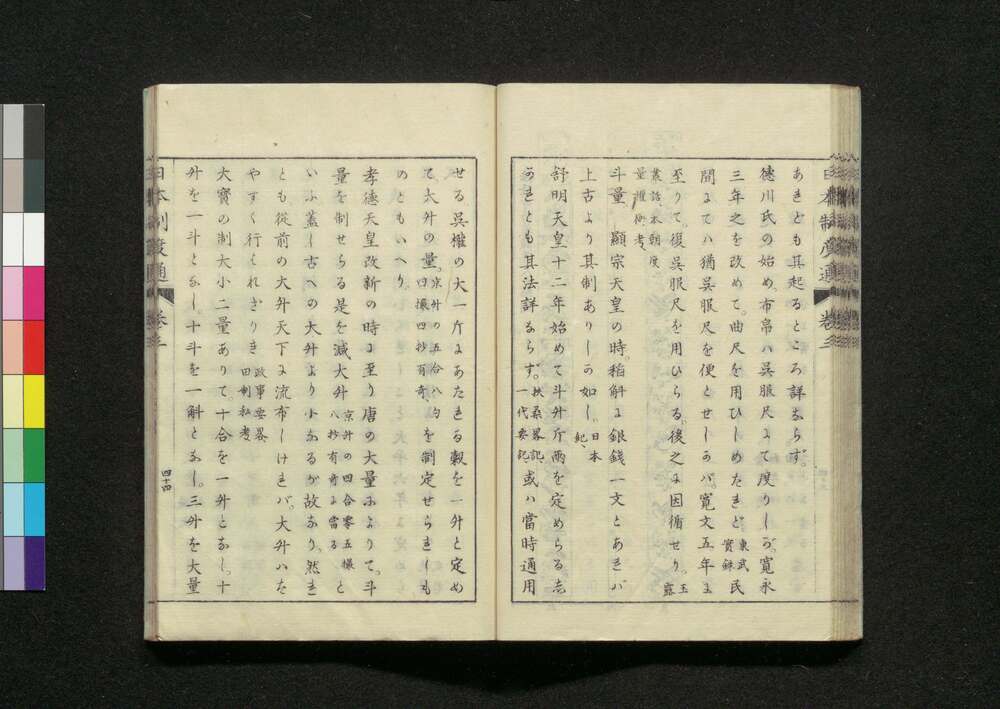 あれども其起るところ詳ならず。
徳川氏の始め、布帛ハ呉服尺にて度りしが、寛永
三年之を改めて。曲尺を用ひしめたれど 東武實録 民
間にてハ猶呉服尺を便とせしかバ、寛文五年に
至りて。復呉服尺を用ひらる。後之に因循せり。玉露
叢話、本朝度量權衡考
斗量 顯宗天皇の時。稻斛に銀錢一文とあれバ
上古より其制ありしか如し、日本紀、
舒明天皇十二年始めて斗升斤兩を定めらる志
かれとも其法詳ならず。扶桑畧記一代要記、或ハ當時通用
せる呉權の大一斤にあたれる穀を一升と定め
て。大升の量。京升の五合八勺四撮四抄有奇、を制定せられしも
のともいへり、
孝徳天皇改新の時に至り唐の大量によりて。斗
量を制せらる是を減大升 京升の四合零五撮八抄有奇に當る と
いふ蓋し古への大升より小なるが故なり、然れ
とも從前の大升天下に流布しけれバ。大升ハた
やすく行はれざりき 政事要畧田制私考
大寳の制大小二量ありて。十合を一升となし。十
升を一斗となし。十斗を一斛となし。三升を大量
日本制度通 卷三
日本制度通 卷三
四十四